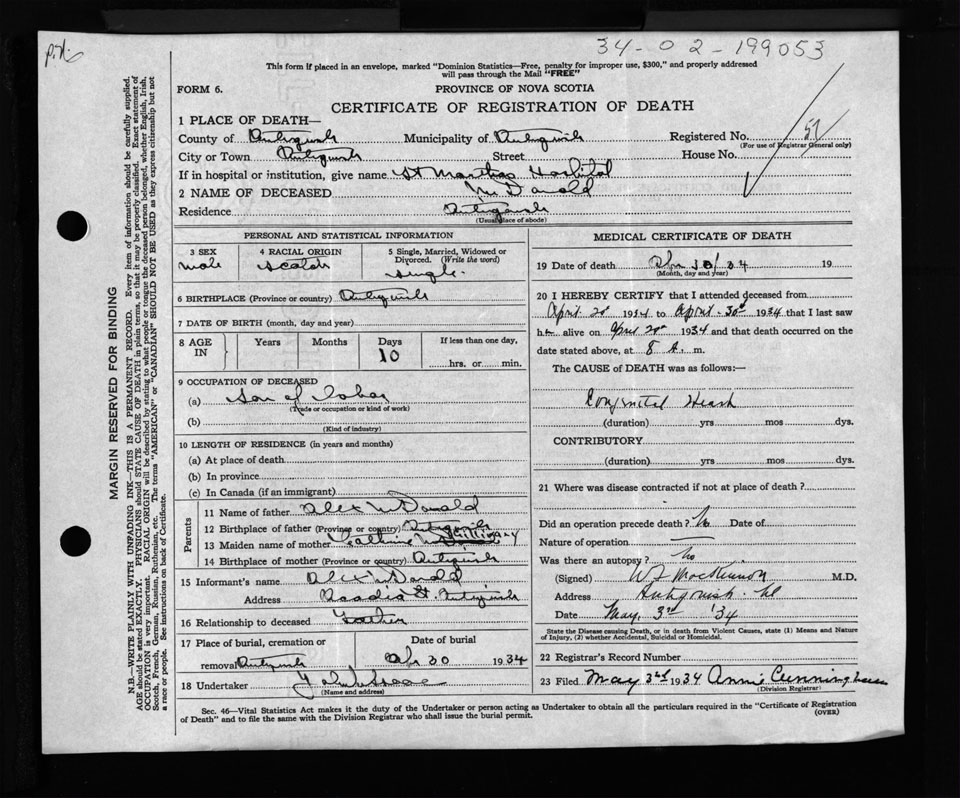 34-02-199053
This form if placed in an envelope, marked "Dominion Statistics—Free, penalty for improper use, $300," and properly addressed
will pass through the Mail "FREE"
FORM 6. PROVINCE OF NOVA SCOTIA
CERTIFICATE OF REGISTRATION OF DEATH
1 PLACE OF DEATH—
County of Antigonish Municipality of Antigonish Registered No. 51
(For use of Registrar General only)
City or Town Antigonish Street House No.
If in hospital or institution, give name St Marthas Hospital
2 NAME OF DECEASED McDonald
Residence Antigonish
(Usual place of abode)
PERSONAL AND STATISTICAL INFORMATION
3 SEX 4 RACIAL ORIGIN 5 Single, Married, Widowed or Divorced. (Write the word)
male scotch single.
6 BIRTHPLACE (Province or country) Antigonish
7 DATE OF BIRTH (month, day and year)
8 AGE IN Years Months Days If less than one day,
10 hrs. or min.
9 OCCUPATION OF DECEASED
(a) Son of labor
(Trade or occupation or kind of work)
(b)
(Kind of industry)
10 LENGTH OF RESIDENCE (in years and months)
(a) At place of death
(b) In province
(c) In Canada (if an immigrant)
Parents
11 Name of father Alex McDonald
12 Birthplace of father (Province or country) Antigonish
13 Maiden name of mother McGillivray
14 Birthplace of mother (Province or country) Antigonish
15 Informant's name Alex McDonald
Address St. Antigonish
16 Relationship to deceased Father
17 Place of burial, cremation or Date of burial
removal Antigonish Apr 30 1934
18 Undertaker
(Name and address)
MEDICAL CERTIFICATE OF DEATH
19 Date of death Apr 30/34 19
(Month, day and year)
20 I HEREBY CERTIFY that I attended deceased from
April 20 1934 to April 30th 1934 that I last saw
h alive on April 20th 1934 and that death occurred on
the date stated above, at 8 A. m.
The CAUSE of DEATH was as follows:—
Congenital Heart
(duration) yrs mos dys.
CONTRIBUTORY
(duration) yrs mos dys.
21 Where was disease contracted if not at place of death?
Did an operation precede death? No Date of
Nature of operation
Was there an autopsy? No
(Signed) W F MacKinnon M.D.
Address Antigonish NS
Date May. 3rd '34
State the Disease causing Death, or in death from Violent Causes, state (1) Means and Nature
of Injury, (2) whether Accidental, Suicidal or Homicidal.
22 Registrar's Record Number
23 Filed May 3rd 1934 Annie Cunningham
(Division Registrar)
Sec. 46—Vital Statistics Act makes it the duty of the Undertaker or person acting as Undertaker to obtain all the particulars required in the "Certificate of Registration
of Death" and to file the same with the Division Registrar who shall issue the burial permit. (OVER)
MARGIN RESERVED FOR BINDING
N.B.—WRITE PLAINLY WITH UNFADING INK—THIS IS A PERMANENT RECORD. Every item of information should be carefully supplied.
AGE should be stated EXACTLY. PHYSICIANS should STATE CAUSE OF DEATH in plain terms, so that it may be properly classified. Exact statement of
OCCUPATION is very important. RACIAL ORIGIN will be described by stating to what people or tongue the deceased person belonged, whether English, Irish,
Scotch, French, German, Russian, Ruthenian, etc. The terms "AMERICAN" or "CANADIAN" SHOULD NOT BE USED as they express citizenship but not
a race or people. See instructions on back of Certificate.